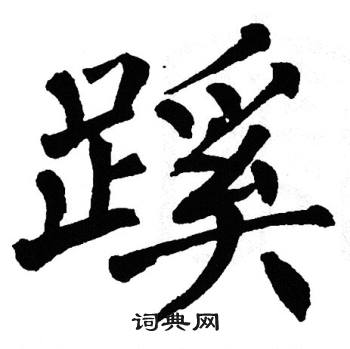 蹊
词典网